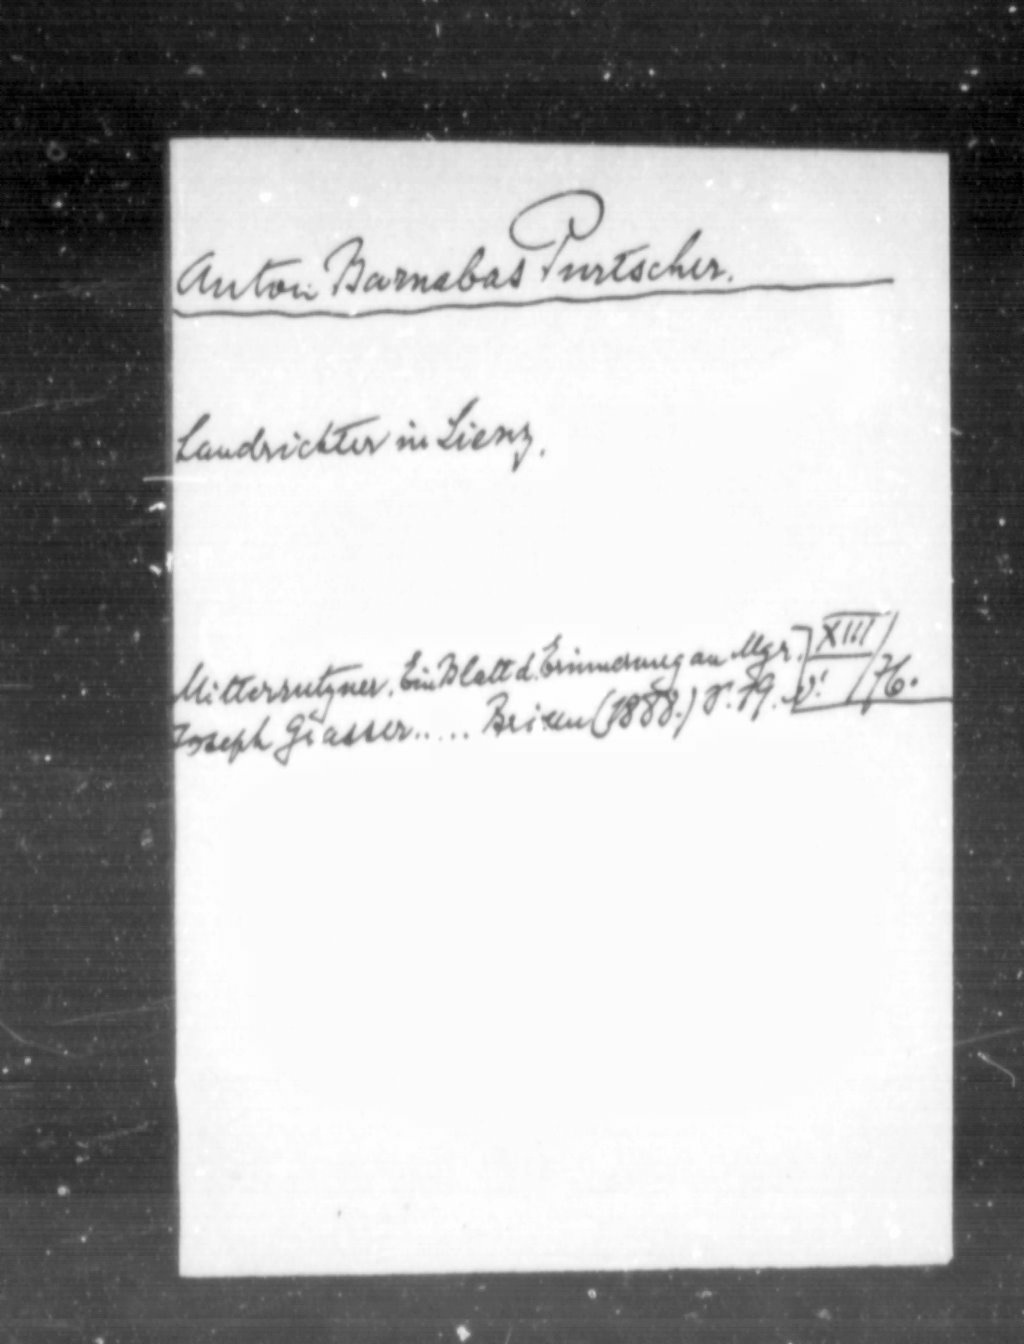 Anton Barnabas Purtscher.
Landrichter in Lienz.
Mitterrutzner. Ein Blatt d. Erinnerung an Mgr. XIII
Joseph Grasser..... Brixen (1888.) S. 19. 76.